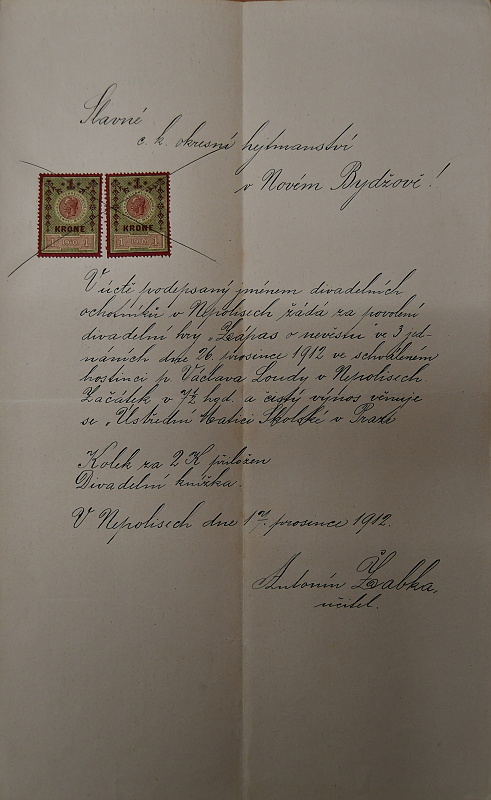 Slavné
c. k. okresní hejtmanství
v Novém Bydžově!
1 1
KRONE KRONE
1 1910 1 1 1
V úctě podepsaný jménem divadelních
ochotníků v Nepolisech žádá za povolení
divadelní hry „Zápas o nevěstu“ ve 3 jed-
náních dne 26. prosince 1912 ve schváleném
hostinci p. Václava Loudy v Nepolisech.
Začátek v 7½ hod. a čistý výnos věnuje
se „Ústřední Matici Školské v Praze
Kolek za 2 K přiložen
Divadelní knížka.
V Nepolisech dne prosince 1912.
Antonín Žabka,
učitel.